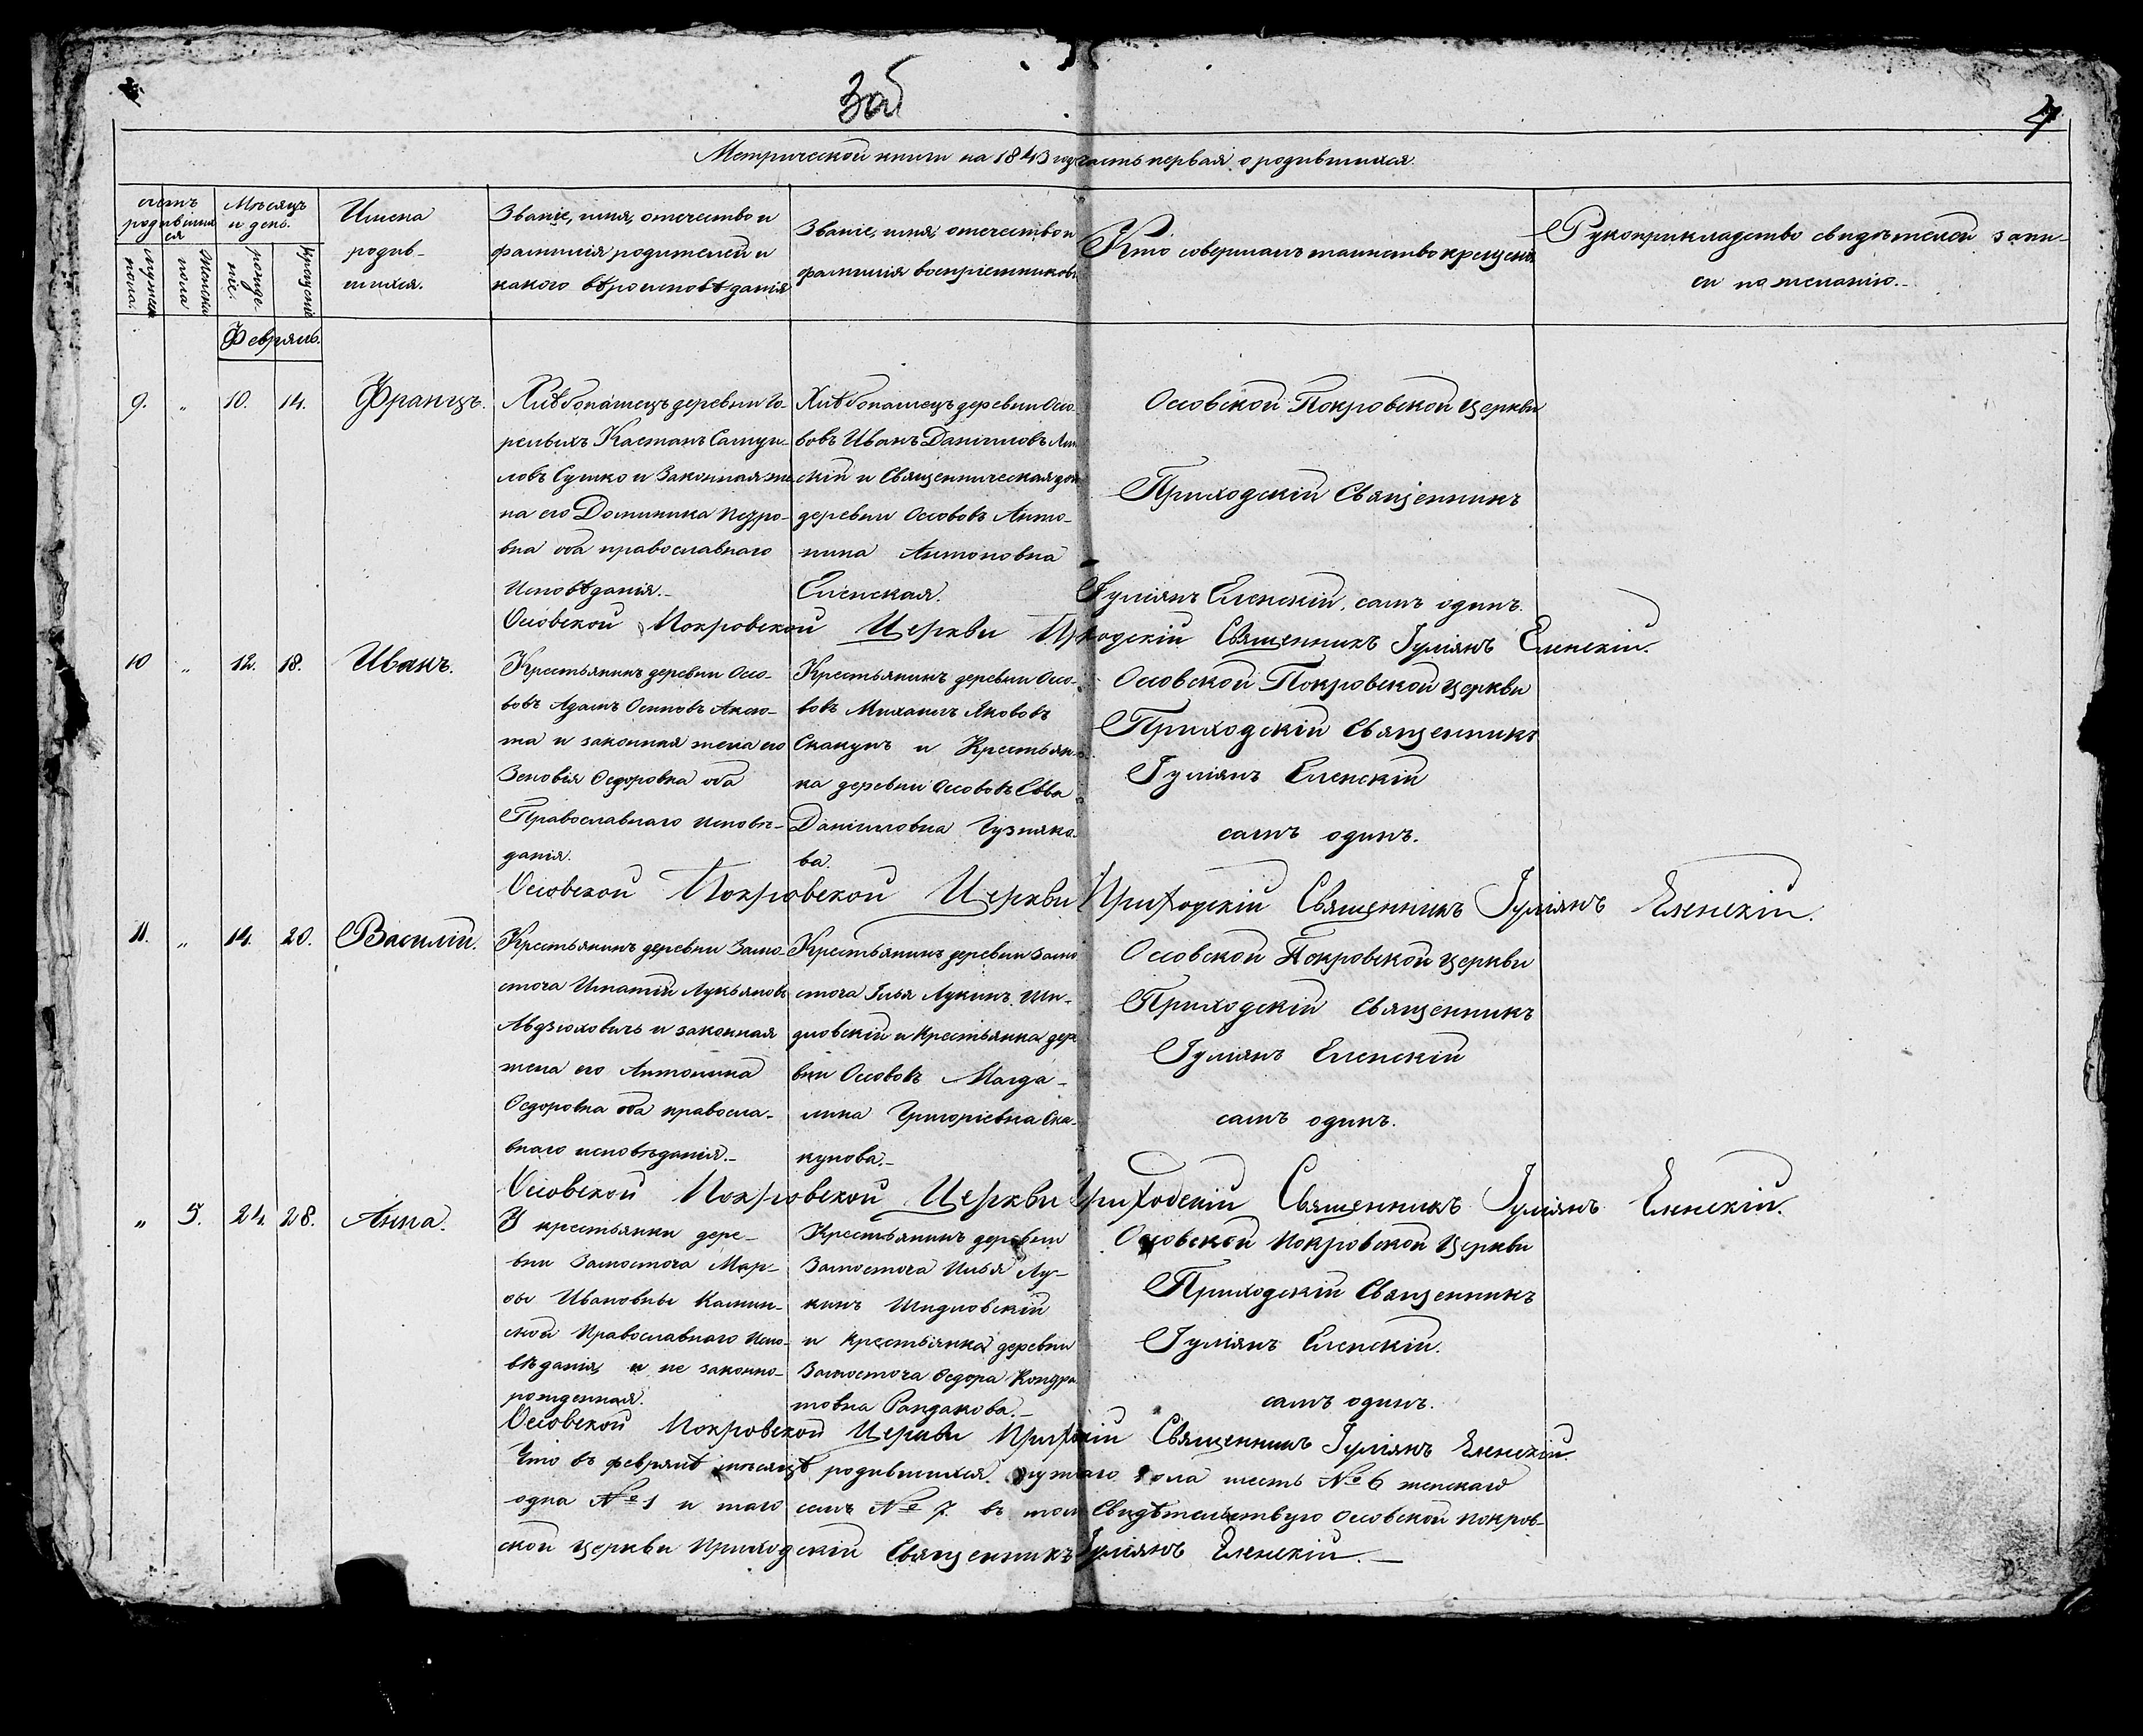 3об
4
Метрической книги на 1843 годъ часть первая о родившихся.
счетъ родившихся
Мѣсяцъ и день.
Имена родив-шихся.
Званіе, имя, отчество и фамилія родителей и какого вѣроисповѣданія
Званіе, имя, отчество и фамилія воспріемниковъ
Кто совершалъ таинство крещенія
Рукоприкладство свидѣтелей запи-си по желанію.-
мужеска пола.
Женска пола
рожде-ніе.
крещеніе
Февраль.
9. „ 10. 14. Францъ.
Хлѣбопашецъ деревни Го-
релыхъ Каетанъ Самуи-
ловъ Сушко и Законная же-
на его Доминика Петро-
вна оба православнаго
Исповѣданія.-
Хлѣбопашецъ деревни Оссо-
вовъ Иванъ Даніиловъ
скій и Священническая дочь
деревни Оссововъ Анто-
нина Антоновна
Еленская.
Оссовской Покровской Церкви
Приходскій Священникъ
Іуліянъ Еленскій, самъ одинъ.
Оссовской Покровской Церкви Приходскій Священникъ Іуліянъ Еленскій.
10 „ 12. 18. Иванъ.
Крестьянинъ деревни Оссо-
вовъ Адамъ Осиповъ Аксю-
та и законная жена его
Зеновія Ѳедоровна оба
Православнаго исповѣ-
данія.
Крестьянинъ деревни Оссо-
вовъ Михаилъ Якововъ
Скакунъ и Крестьян-
ка деревни Оссововъ Евва
Даніиловна Гузняко-
ва.
Оссовской Покровской Церкви
Приходскій Священникъ
Іуліянъ Еленскій
самъ одинъ.
Оссовской Покровской Церкви Приходскій Священникъ Іуліянъ Еленскій.
11. „ 14. 20. Василій.
Крестьянинъ деревни Замо-
сточа Игнатій Лукьяновъ
Авдзюховичъ и законная
жена его Антонина
Ѳедоровна оба правосла-
внаго исповѣданія.-
Крестьянинъ деревни Замо
сточа Илья Лукинъ Ши-
дловскій и Крестьянка дере
вни Оссововъ Магда-
лина Григоріевна Ска-
кунова.-
Оссовской Покровской Церкви
Приходскій Священникъ
Іуліянъ Еленскій
самъ одинъ.
Оссовской Покровской Церкви Приходскій Священникъ Іуліянъ Еленскій.
„ 5. 24. 28. Анна.
У крестьянки дере-
вни Замосточа Мар-
ѳы Ивановны Камин-
ской Православнаго Испо-
вѣданія, и не законно-
рожденная.
Крестьянинъ деревни
Замосточа Илья Лу-
кинъ Шидловскій
и крестьянка деревни
Замосточа Ѳедора Кондра
товна Рандакова.-
Оссовской Покровской Церкви
Приходскій Священникъ
Іуліянъ Еленскій.
самъ одинъ.
Оссовской Покровской Церкви Прихскій Священникъ Іуліянъ Еленскій.
Что въ февралѣ мѣсяцѣ родившихся. мужскаго пола шесть № 6 женскаго
одна № 1 и того семь № 7. въ томъ Свидѣтельствую Оссовской Покров-
ской Церкви Приходскій Священникъ Іуліянъ Еленскій.-